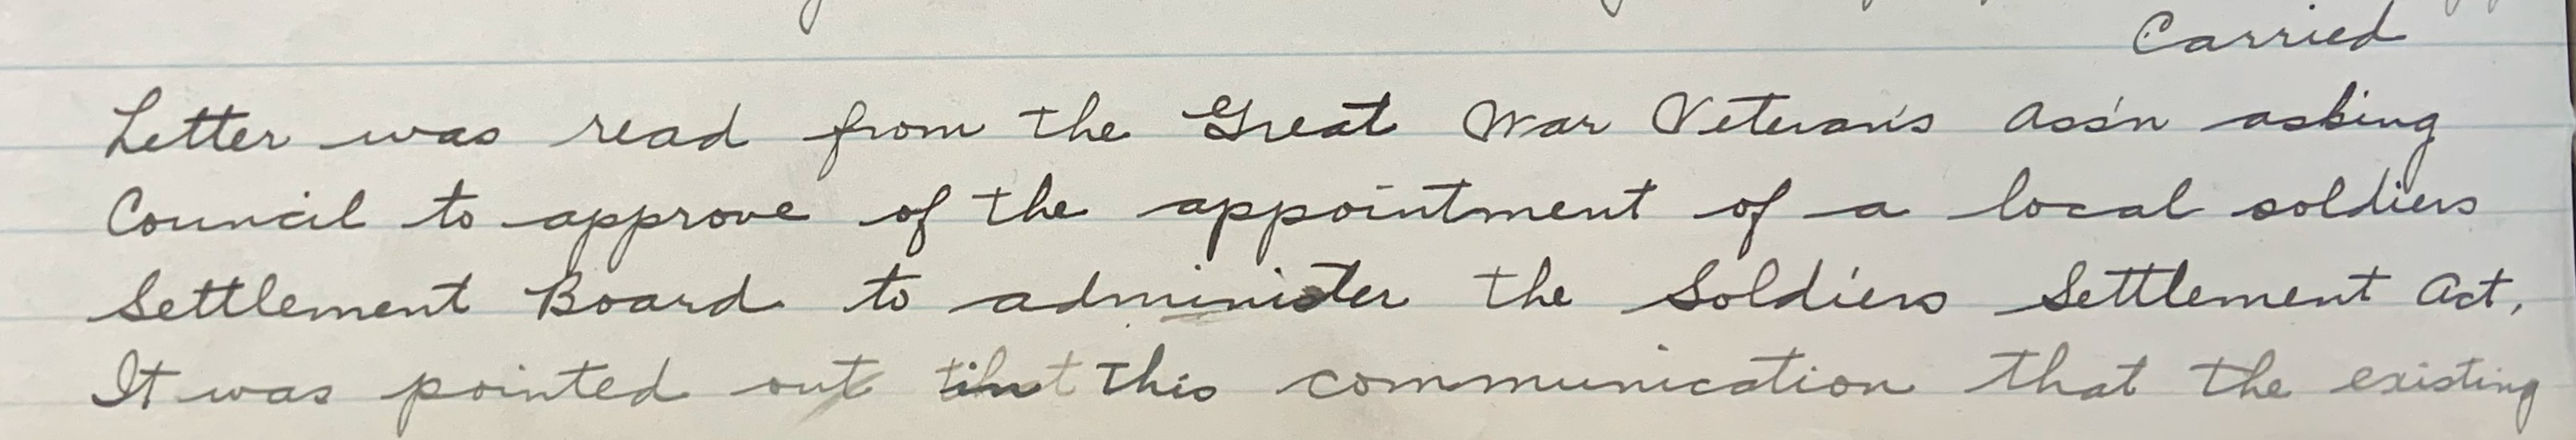 Carried
Letter was read from the Great War Veteran's Ass'n asking
Council to approve of the appointment of a local soldiers
Settlement Board to administer the Soldiers Settlement Act.
It was pointed out in this communication that the existing